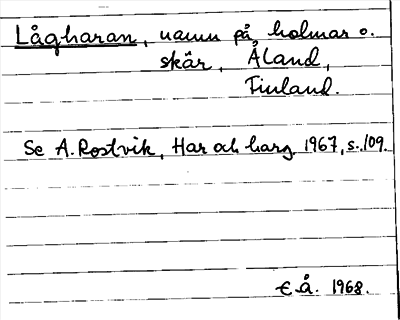 Lågharan, namn på holmar o.
skär, Åland,
Finland.
Se A. Rostvik, Har och harg 1967, s. 109.
€.å. 1968.